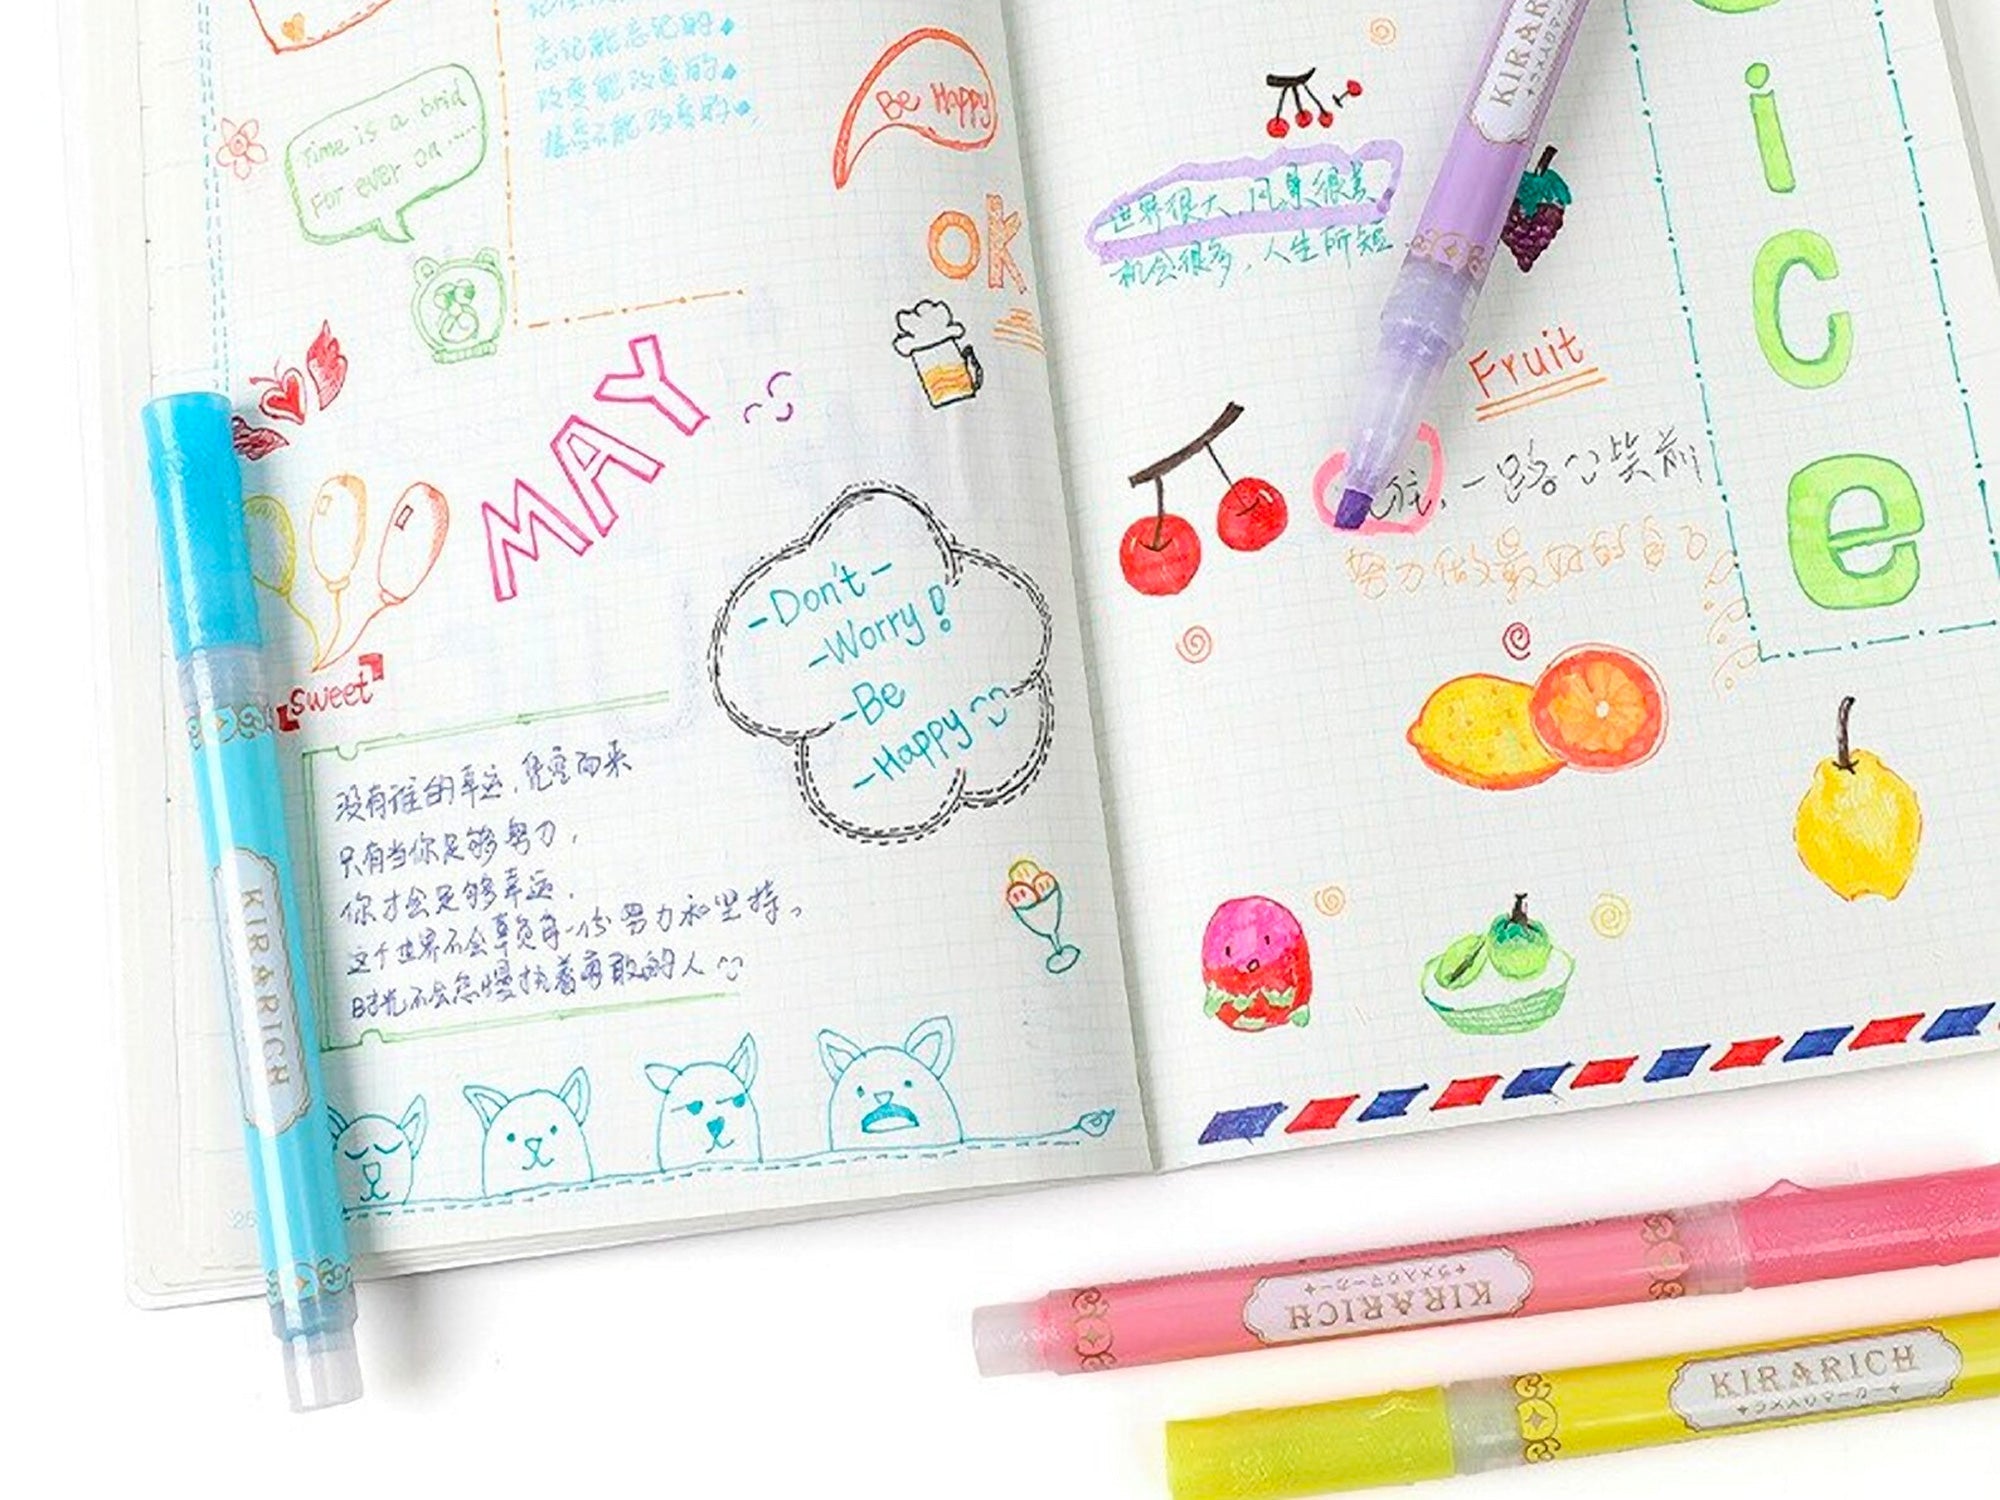 忘记能忘记的。
改变能改变的。
接受不能改变的。
Time is a brid
For ever on .....
Be Happy
ok
MAY
Sweet
-Don't-
-Worry!
-Be
-Happy
没有谁的幸运，凭空而来
只有当你足够努力，
你才会足够幸运．
这个世界不会辜负每一份努力和坚持。
时光不会怠慢执着勇敢的人
KIRARICH
世界很大，风景很美
机会很多，人生所短
Fruit
往，一路 笑前
努力做最好的自己
ice
KIRAR
KIRARICH
✦ラメ入りマーカー✦
KIRARICH
✦ラメ入りマーカー✦